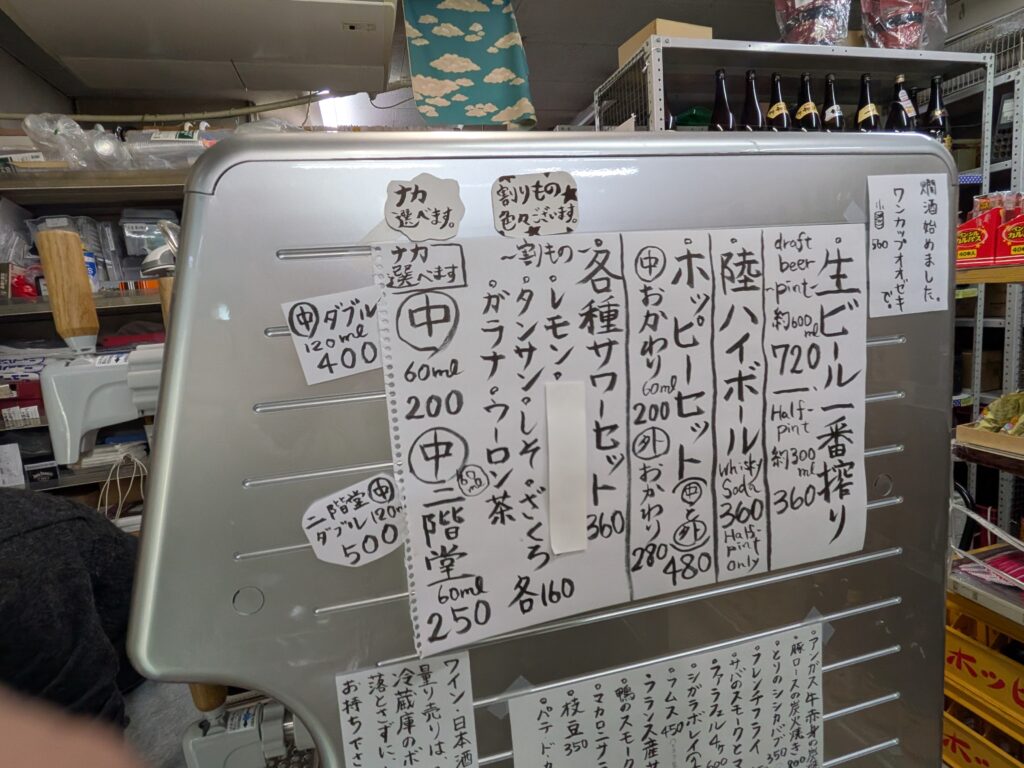 燗酒始めました。
ワンカップオオゼキで。
500
ナカ
選べます。
割りもの
色々ございます。
生ビール一番搾り
draft
beer
-pint-
約600ml
720
Half-
pint
約300ml
360
陸ハイボール
Whisky
Soda
360
Half
pint
only
ホッピーセット
中と外
480
中おかわり
60ml
200
外おかわり
280
各種サワーセット
360
~割もの~
レモン
タンサン・しそ・ざくろ
ガラナ・ウーロン茶
各160
ナカ
選べます
中
60ml
200
中二階堂
60ml
250
中ダブル
120ml
400
二階堂中
ダブル120ml
500
アンガス牛赤身の
豚ロースの炭火焼き
800
とりのシシカバブ
フレンチフライ
サバのスモークと
ファラフェル4ヶ
600
シガラボレイ
フムス450
フランス産
鴨のスモーク
マカロニサ
枝豆
350
パテド
ワイン・日本酒
量り売りは、
冷蔵庫のボ
落とさずに
お持ち下さ
ペンシル
カルパス
ホッピ